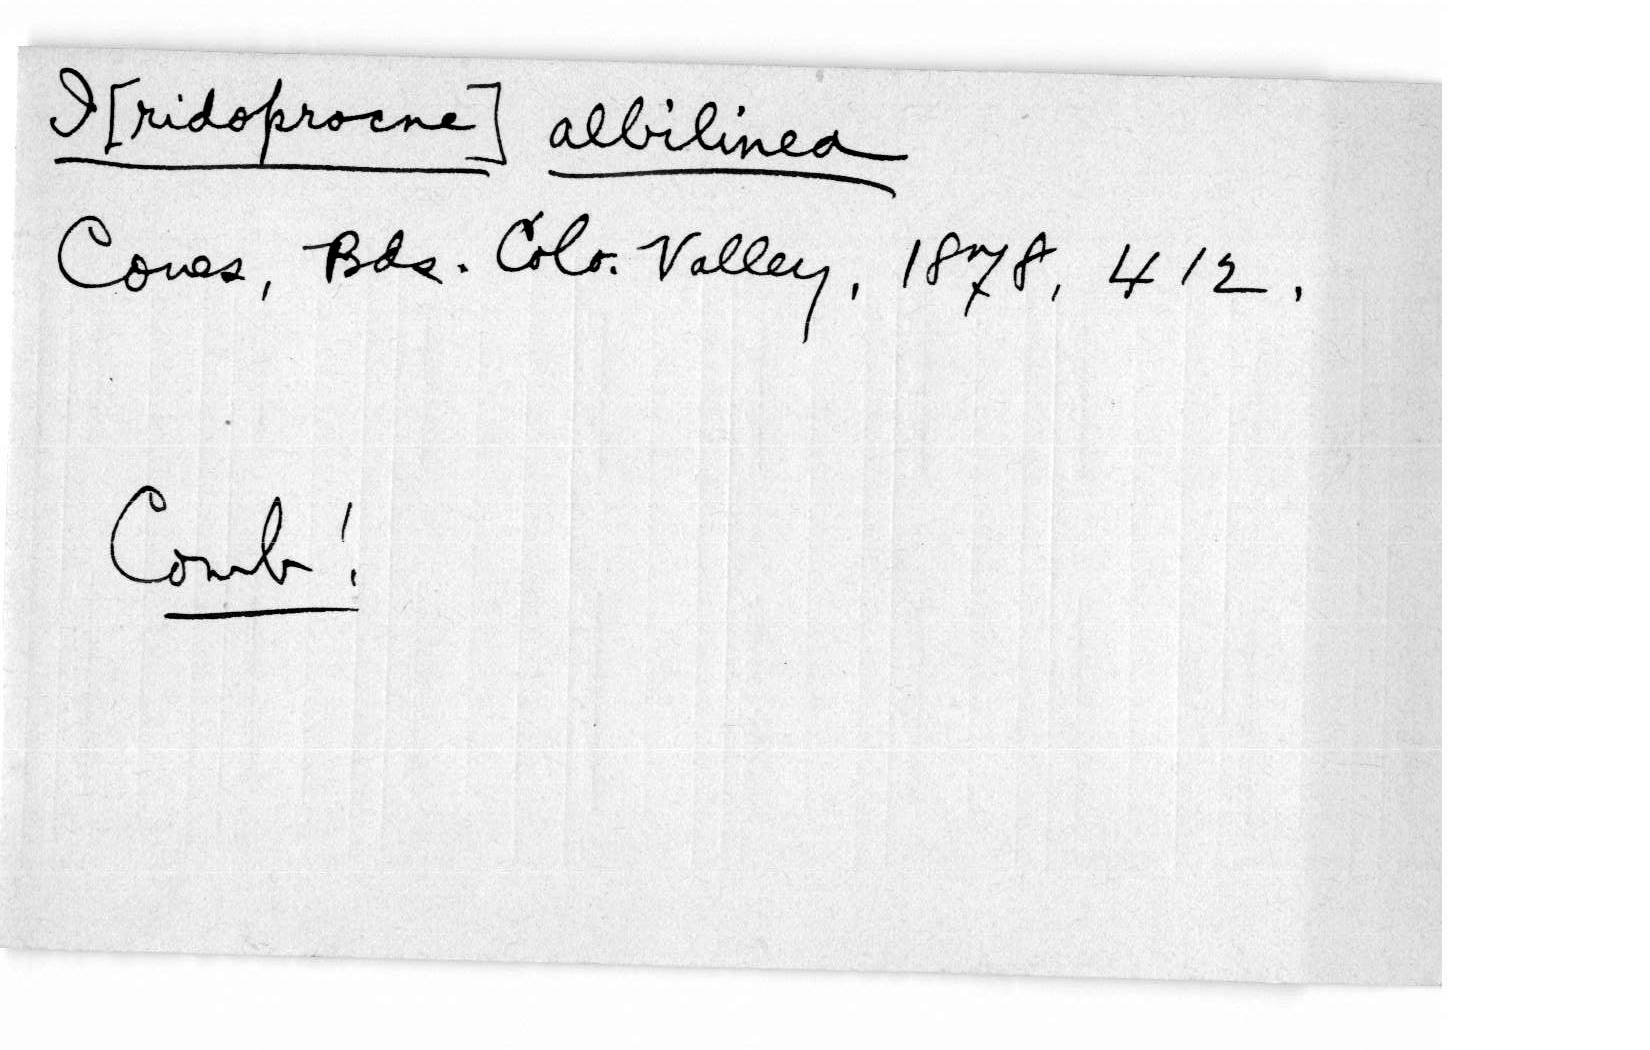 I[ridoprocne] albilinea
Coues, Bds. Colo. Valley, 1878, 412.
Comb!